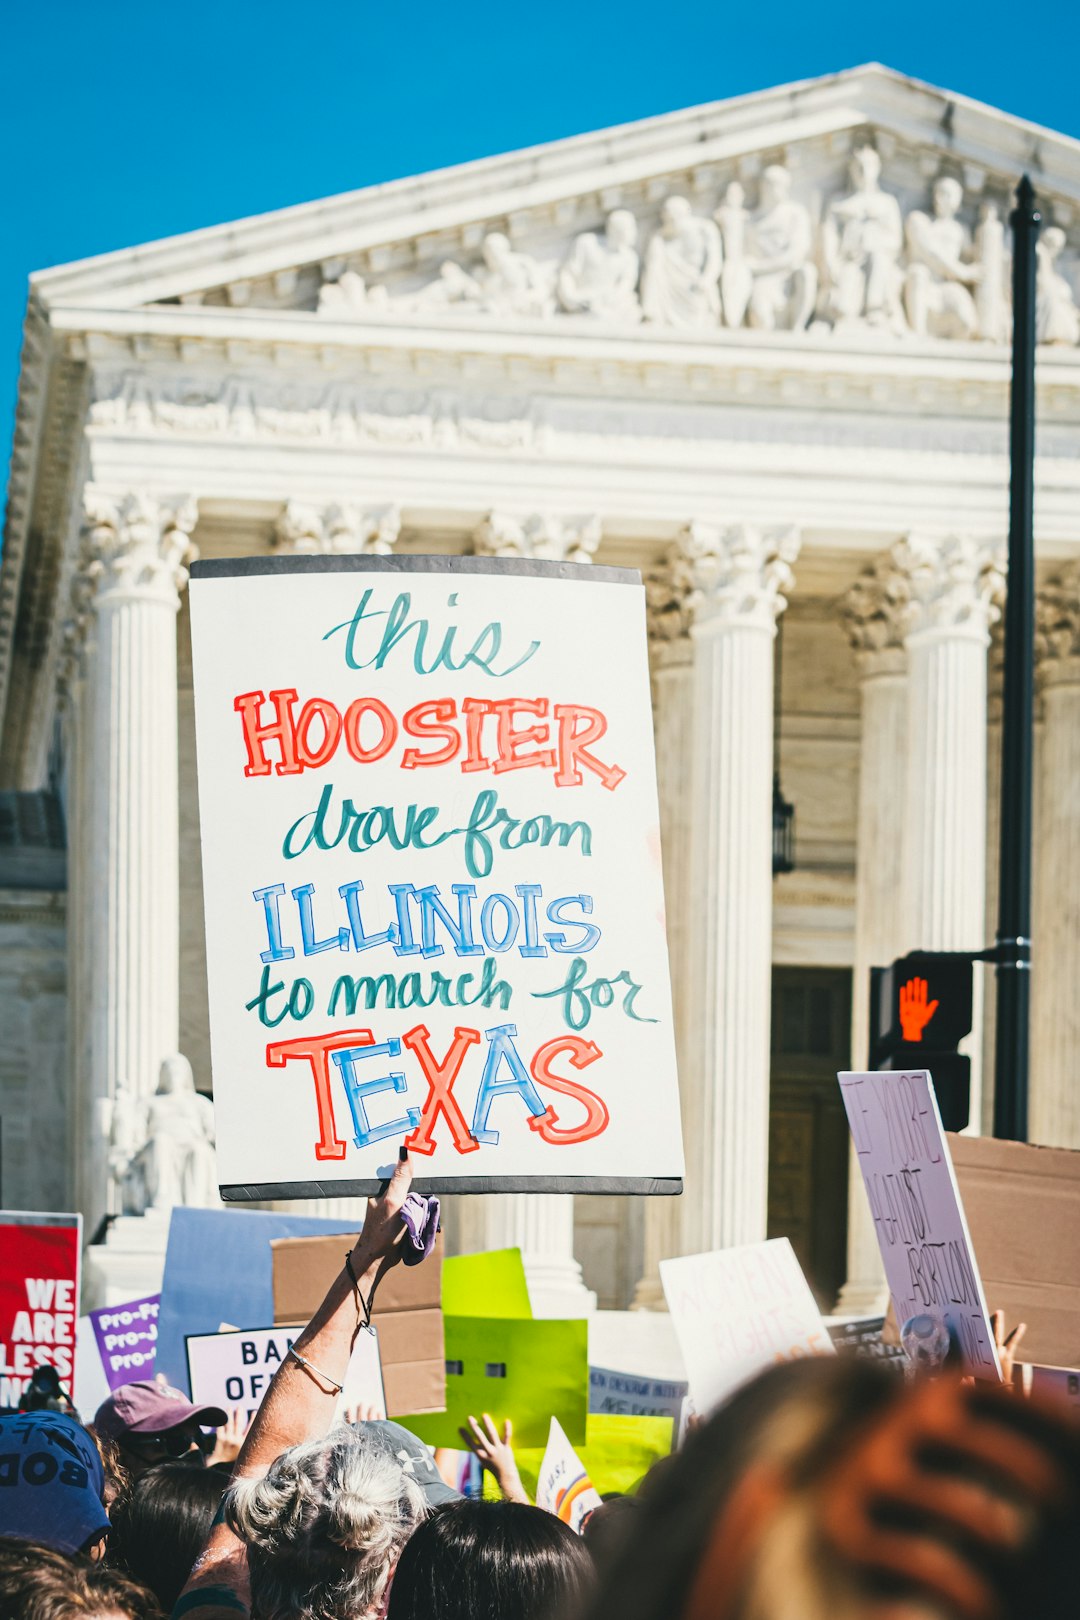 this
HOOSIER
drove from
ILLINOIS
to march for
TEXAS
WE
ARE
LESS
Pro-
Pro-
Pro-
BAN
OF
ABORTION